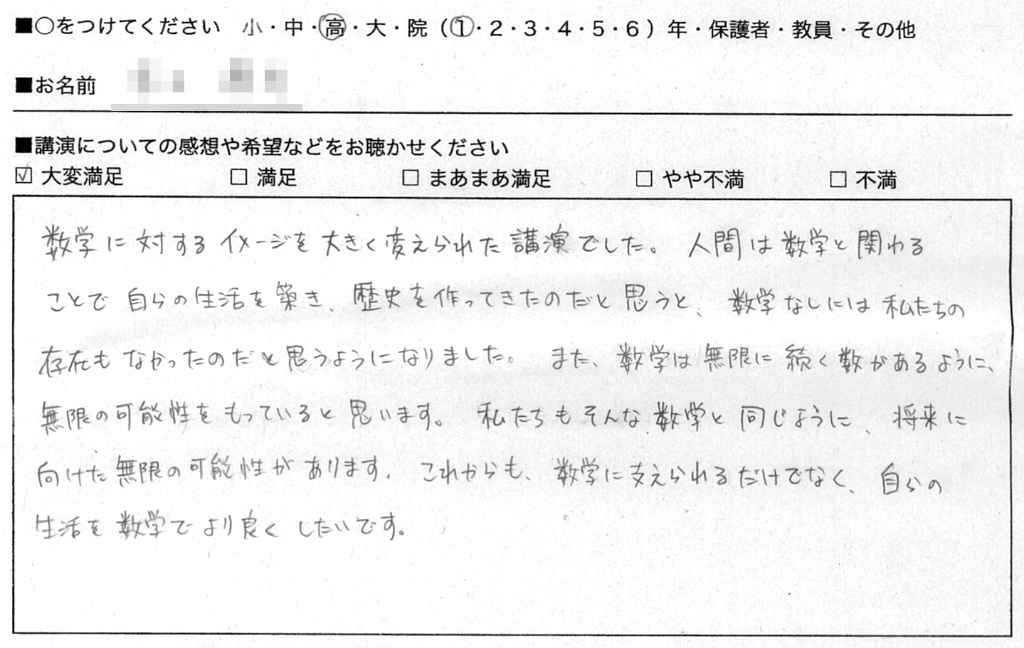 ■○をつけてください 小・中・高・大・院（1・2・3・4・5・6）年・保護者・教員・その他
■お名前
■講演についての感想や希望などをお聴かせください
☑ 大変満足 □ 満足 □ まあまあ満足 □ やや不満 □ 不満
数学に対するイメージを大きく変えられた講演でした。人間は数学と関わる
ことで自らの生活を築き、歴史を作ってきたのだと思うと、数学なしには私たちの
存在もなかったのだと思うようになりました。また、数学は無限に続く数があるように、
無限の可能性をもっていると思います。私たちもそんな数学と同じように、将来に
向けた無限の可能性があります。これからも、数学に支えられるだけでなく、自らの
生活を数学でより良くしたいです。